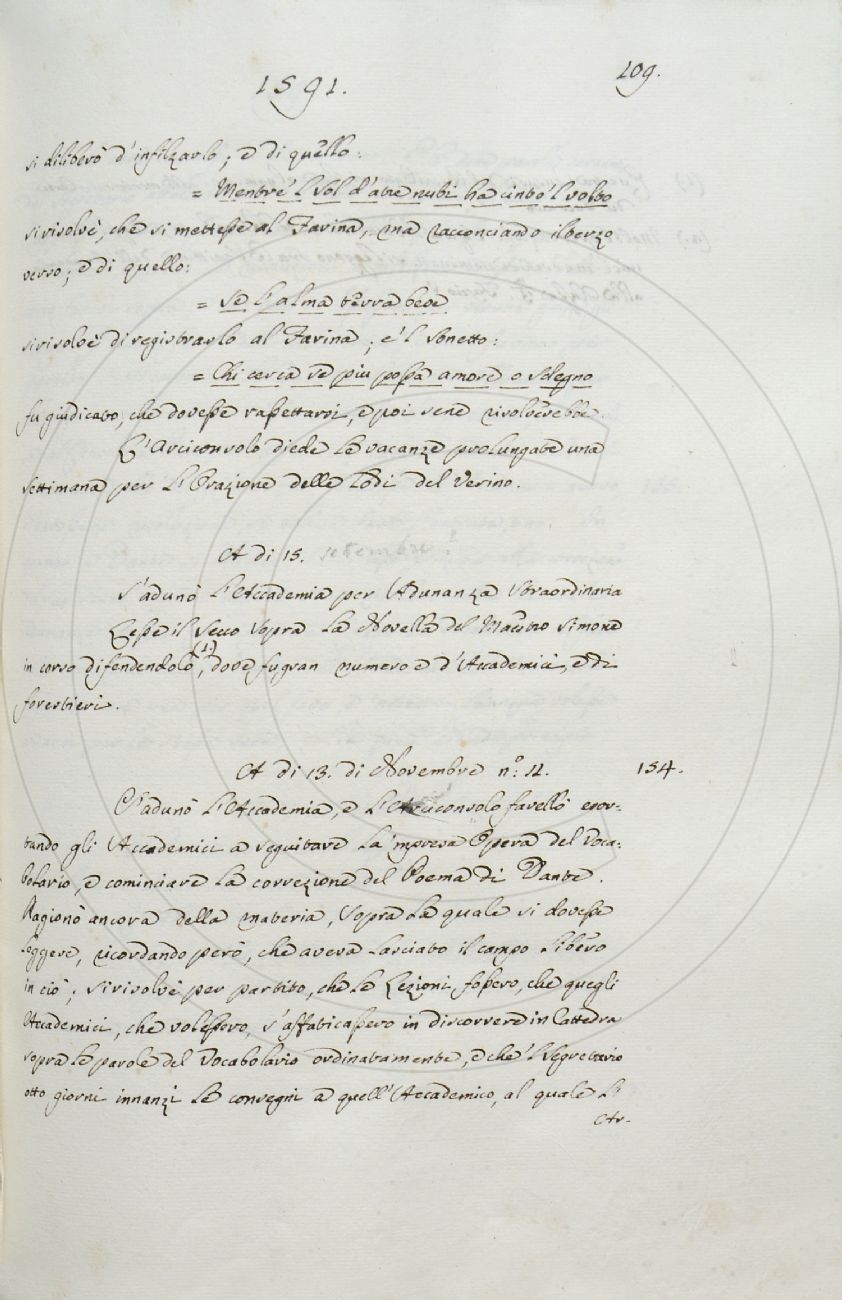 1591.
109.
si diliberò d'infilzarlo; e di quello:
= Mentre 'l Sol d'atre nubi ha cinto 'l volto
si risolvè, che si mettesse al Farina, ma racconciando il terzo
verso; e di quello:
= Se l'alma terra beve
si risolvè di registrarlo al Farina; e 'l sonetto:
= Chi cerca se piu possa amore o sdegno
fu giudicato, che dovesse rassettarsi, e poi sene risolverebbe.
L'Arciconsolo diede le vacanze prolungate una
settimana per l'Orazione delle lodi del Verino.
A di 15. settembre?
S'adunò l'Accademia per Adunanza straordinaria
Lesse il Secco sopra la Novella del Maestro Simone
in corso difendendolo (1.), dove fu gran numero e d'Accademici, e di
forestieri.
A di 13. di Novembre n.º 11.
154.
S'adunò l'Accademia, e l'Arciconsolo favellò esor-
tando gli Accademici a seguitare la 'mpresa Opera del Voca-
bolario, e cominciare la correzione del Poema di Dante.
Ragionò ancora della materia, sopra la quale si dovesse
leggere, ricordando però, che aveva lasciato il campo libero
in ciò; si risolvè per partito, che le Lezioni fossero, che quegli
Accademici, che volessero, s'affaticassero in discorrere in Cattedra
sopra le parole del Vocabolario ordinatamente, e che 'l Segretario
otto giorni innanzi le consegni a quell'Accademico, al quale li
Ar-